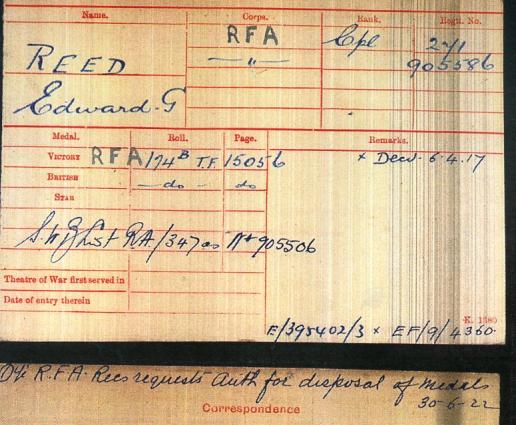 Name. Corps. Rank. Regtl. No.
REED RFA Cpl 271
—"— 905586
Edward. G
Medal. Roll. Page. Remarks.
VICTORY RFA/174B T.F. 15056 × Decd. 6.4.17
BRITISH —do— do
STAR
List RA/347 as No 905506
Theatre of War first served in
Date of entry therein
K. 1380
E/395402/3 × EF/9/4360.
O i/c R.F.A. Recs requests auth for disposal of medals
30-6-22
Correspondence